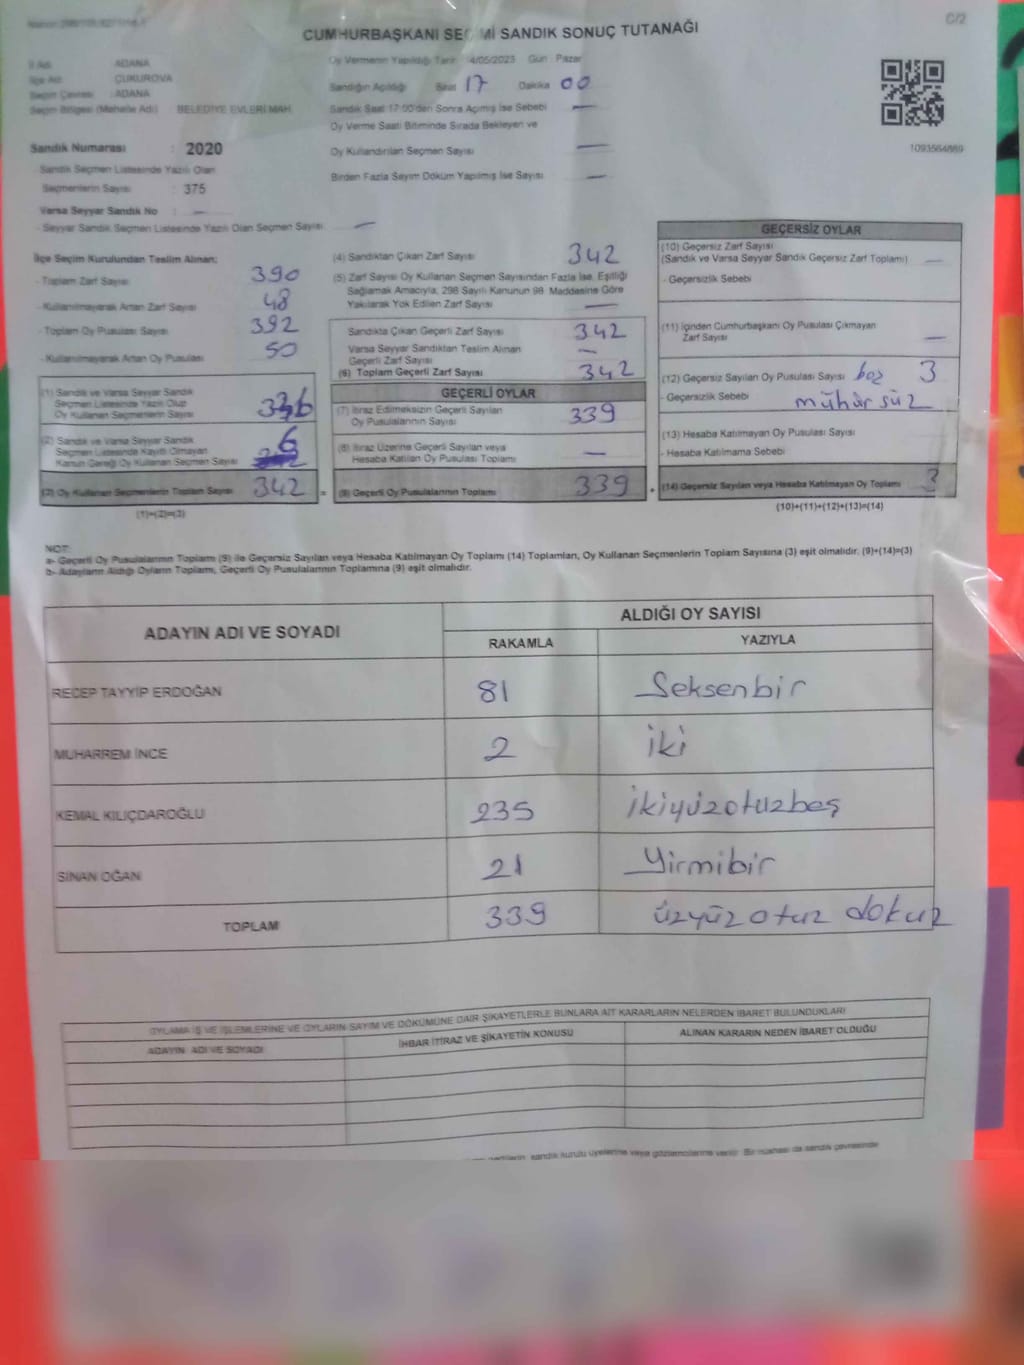 CUMHURBAŞKANI SEÇİMİ SANDIK SONUÇ TUTANAĞI
C/2
İl Adı : ADANA
İlçe Adı : ÇUKUROVA
Seçim Çevresi : ADANA
Seçim Bölgesi (Mahalle Adı) : BELEDİYE EVLERİ MAH.
Sandık Numarası : 2020
- Sandık Seçmen Listesinde Yazılı Olan
Seçmenlerin Sayısı : 375
Varsa Seyyar Sandık No : —
- Seyyar Sandık Seçmen Listesinde Yazılı Olan Seçmen Sayısı : —
Oy Vermenin Yapıldığı Tarih : 14/05/2023 Gün : Pazar
Sandığın Açıldığı Saat 17 Dakika 00
Sandık Saat 17:00'den Sonra Açılmış İse Sebebi —
Oy Verme Saati Bitiminde Sırada Bekleyen ve
Oy Kullandırılan Seçmen Sayısı —
Birden Fazla Sayım Döküm Yapılmış İse Sayısı —
1093564869
İlçe Seçim Kurulundan Teslim Alınan;
- Toplam Zarf Sayısı 390
- Kullanılmayarak Artan Zarf Sayısı 48
- Toplam Oy Pusulası Sayısı 392
- Kullanılmayarak Artan Oy Pusulası 50
(1) Sandık ve Varsa Seyyar Sandık
Seçmen Listesinde Yazılı Olup
Oy Kullanan Seçmenlerin Sayısı 336
(2) Sandık ve Varsa Seyyar Sandık
Seçmen Listesinde Kayıtlı Olmayan
Kanun Gereği Oy Kullanan Seçmen Sayısı 6
(3) Oy Kullanan Seçmenlerin Toplam Sayısı 342
(1)+(2)=(3)
(4) Sandıktan Çıkan Zarf Sayısı 342
(5) Zarf Sayısı Oy Kullanan Seçmen Sayısından Fazla İse, Eşitliği
Sağlamak Amacıyla, 298 Sayılı Kanunun 98. Maddesine Göre
Yakılarak Yok Edilen Zarf Sayısı —
Sandıkta Çıkan Geçerli Zarf Sayısı 342
Varsa Seyyar Sandıktan Teslim Alınan
Geçerli Zarf Sayısı —
(6) Toplam Geçerli Zarf Sayısı 342
GEÇERLİ OYLAR
(7) İtiraz Edilmeksizin Geçerli Sayılan
Oy Pusulalarının Sayısı 339
(8) İtiraz Üzerine Geçerli Sayılan veya
Hesaba Katılan Oy Pusulası Toplamı —
= (9) Geçerli Oy Pusulalarının Toplamı 339
GEÇERSİZ OYLAR
(10) Geçersiz Zarf Sayısı
(Sandık ve Varsa Seyyar Sandık Geçersiz Zarf Toplamı) —
- Geçersizlik Sebebi
(11) İçinden Cumhurbaşkanı Oy Pusulası Çıkmayan
Zarf Sayısı —
(12) Geçersiz Sayılan Oy Pusulası Sayısı 3
- Geçersizlik Sebebi mühürsüz
(13) Hesaba Katılmayan Oy Pusulası Sayısı
- Hesaba Katılmama Sebebi
+ (14) Geçersiz Sayılan veya Hesaba Katılmayan Oy Toplamı 3
(10)+(11)+(12)+(13)=(14)
NOT:
a- Geçerli Oy Pusulalarının Toplamı (9) ile Geçersiz Sayılan veya Hesaba Katılmayan Oy Toplamı (14) Toplamları, Oy Kullanan Seçmenlerin Toplam Sayısına (3) eşit olmalıdır. (9)+(14)=(3)
b- Adayların Aldığı Oyların Toplamı, Geçerli Oy Pusulalarının Toplamına (9) eşit olmalıdır.
ADAYIN ADI VE SOYADI
ALDIĞI OY SAYISI
RAKAMLA YAZIYLA
RECEP TAYYİP ERDOĞAN 81 Seksenbir
MUHARREM İNCE 2 iki
KEMAL KILIÇDAROĞLU 235 ikiyüzotuzbeş
SİNAN OĞAN 21 Yirmibir
TOPLAM 339 üzyüzotuz dokuz
OYLAMA İŞ VE İŞLEMLERİNE VE OYLARIN SAYIM VE DÖKÜMÜNE DAİR ŞİKAYETLERLE BUNLARA AİT KARARLARIN NELERDEN İBARET BULUNDUKLARI
ADAYIN ADI VE SOYADI İHBAR İTİRAZ VE ŞİKAYETİN KONUSU ALINAN KARARIN NEDEN İBARET OLDUĞU
sandık kurulu üyelerine veya gözlemcilerine verilir. Bir nüshası da sandık çevresinde